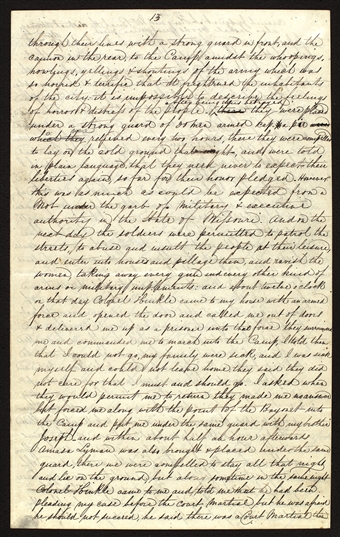 13
through their lines with a strong guard in front, and the
cannon in the rear to the Camp, amidst the whoopings,
howlings, yellings & shoutings of the army which was
so horrid & terrific that it frightened the inhabitants
of the city. It is impossible to describe the feelings
of horror & distress of the people. after being thus betrayed were placed
under a strong guard of 30 men armed cap
which they relieved every two hours, there they were compelled
to lay on the cold ground that night, and were told
in plain language, that they need never to expect their
liberties again, so far for their honors pledged. However
this was as much as could be expected from a
Mob under the garb of military & executive
authority in the State of Missouri. And on the
next day the soldiers were permitted to patrol the
streets, to abuse and insult the people at their leisure,
and enter into houses and pillage them, and ravish the
women, taking away every gun and every other kind of
arms or military implements, and about twelve o'clock
on that day Colonel Hinkle came to my house with an armed
force and opened the door and called me out of doors
& delivered me up as a prisoner unto that force they surrounded
me and commanded me to march into the Camp, I told them
that I could not go, my family were sick, and I was sick
myself and could not leave home they said they did
not care for that I must and should go. I asked when
they would permit me to return they made me no answer
but forced me along with the point of the Bayonet into
the Camp and put me under the same guard with my brother
Joseph, and within about half an hour afterwards
Amasa Lyman was also brought & placed under the same
guard, there we were compelled to stay all that night,
and lie on the ground, but along sometime in the same night
Colonel Hinkle came to me and told me that he had been
pleading my case before the court Martial but he was afraid
he should not succeed, he said there was a Court Martial then